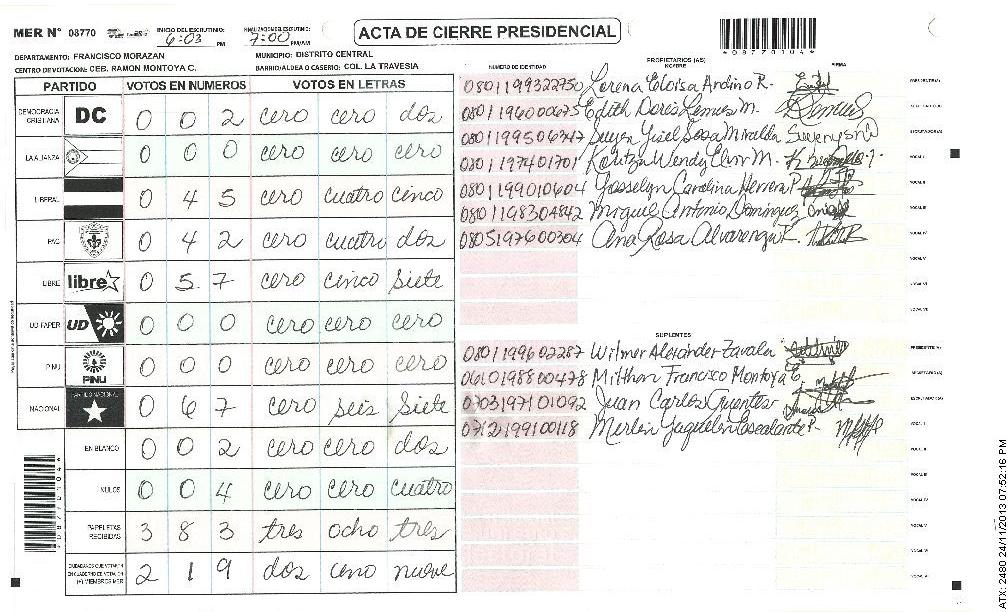 MER N° 08770 INICIO DEL ESCRUTINIO: 6:03 PM FINALIZACION DEL ESCRUTINIO: 7:00 PM/AM
ACTA DE CIERRE PRESIDENCIAL
* 0 8 7 7 0 1 0 4 *
DEPARTAMENTO: FRANCISCO MORAZAN MUNICIPIO: DISTRITO CENTRAL
CENTRO DE VOTACION: CEB. RAMON MONTOYA C. BARRIO/ALDEA O CASERIO: COL. LA TRAVESIA
PARTIDO VOTOS EN NUMEROS VOTOS EN LETRAS
DEMOCRACIA CRISTIANA DC 0 0 2 cero cero dos
LA ALIANZA 0 0 0 cero cero cero
LIBERAL 0 4 5 cero cuatro cinco
PAC 0 4 2 cero cuatro dos
LIBRE libre 0 5 7 cero cinco siete
UD-FAPER UD 0 0 0 cero cero cero
PINU PINU 0 0 0 cero cero cero
NACIONAL 0 6 7 cero seis siete
EN BLANCO 0 0 2 cero cero dos
NULOS 0 0 4 cero cero cuatro
PAPELETAS RECIBIDAS 3 8 3 tres ocho tres
CIUDADANOS QUE VOTARON EN CUADERNO DE VOTACION (+) MIEMBROS MER 2 1 9 dos uno nueve
NUMERO DE IDENTIDAD PROPIETARIOS (AS) NOMBRE FIRMA
0801199322750 Lorena Eloisa Andino R. PRESIDENTE(A)
0801196000675 Edith Doris Lemus M. Lemus
0801199506747 Suyen Yisel Sosa Miralda ESCRUTADOR(A)
0801197401701 Wendy M. VOCAL I
0801199010604 Yosselyn Carolina Herrera P. VOCAL II
0801198304842 Miguel Antonio Dominguez VOCAL III
0805197600304 Ana Rosa Alvarenga VOCAL IV
VOCAL V
VOCAL VI
VOCAL VII
SUPLENTES
0801199602287 Wilmer Alexander Zavala PRESIDENTE(A)
0610198800478 Milthon Francisco Montoya SECRETARIO(A)
0703197101092 Juan Carlos Fuentes ESCRUTADOR(A)
0712199100118 Merlin Jaquelin Escalante P. VOCAL I
VOCAL II
VOCAL III
VOCAL IV
VOCAL V
VOCAL VI
VOCAL VII
ATX: 2480 24/11/2013 07:52:16 PM